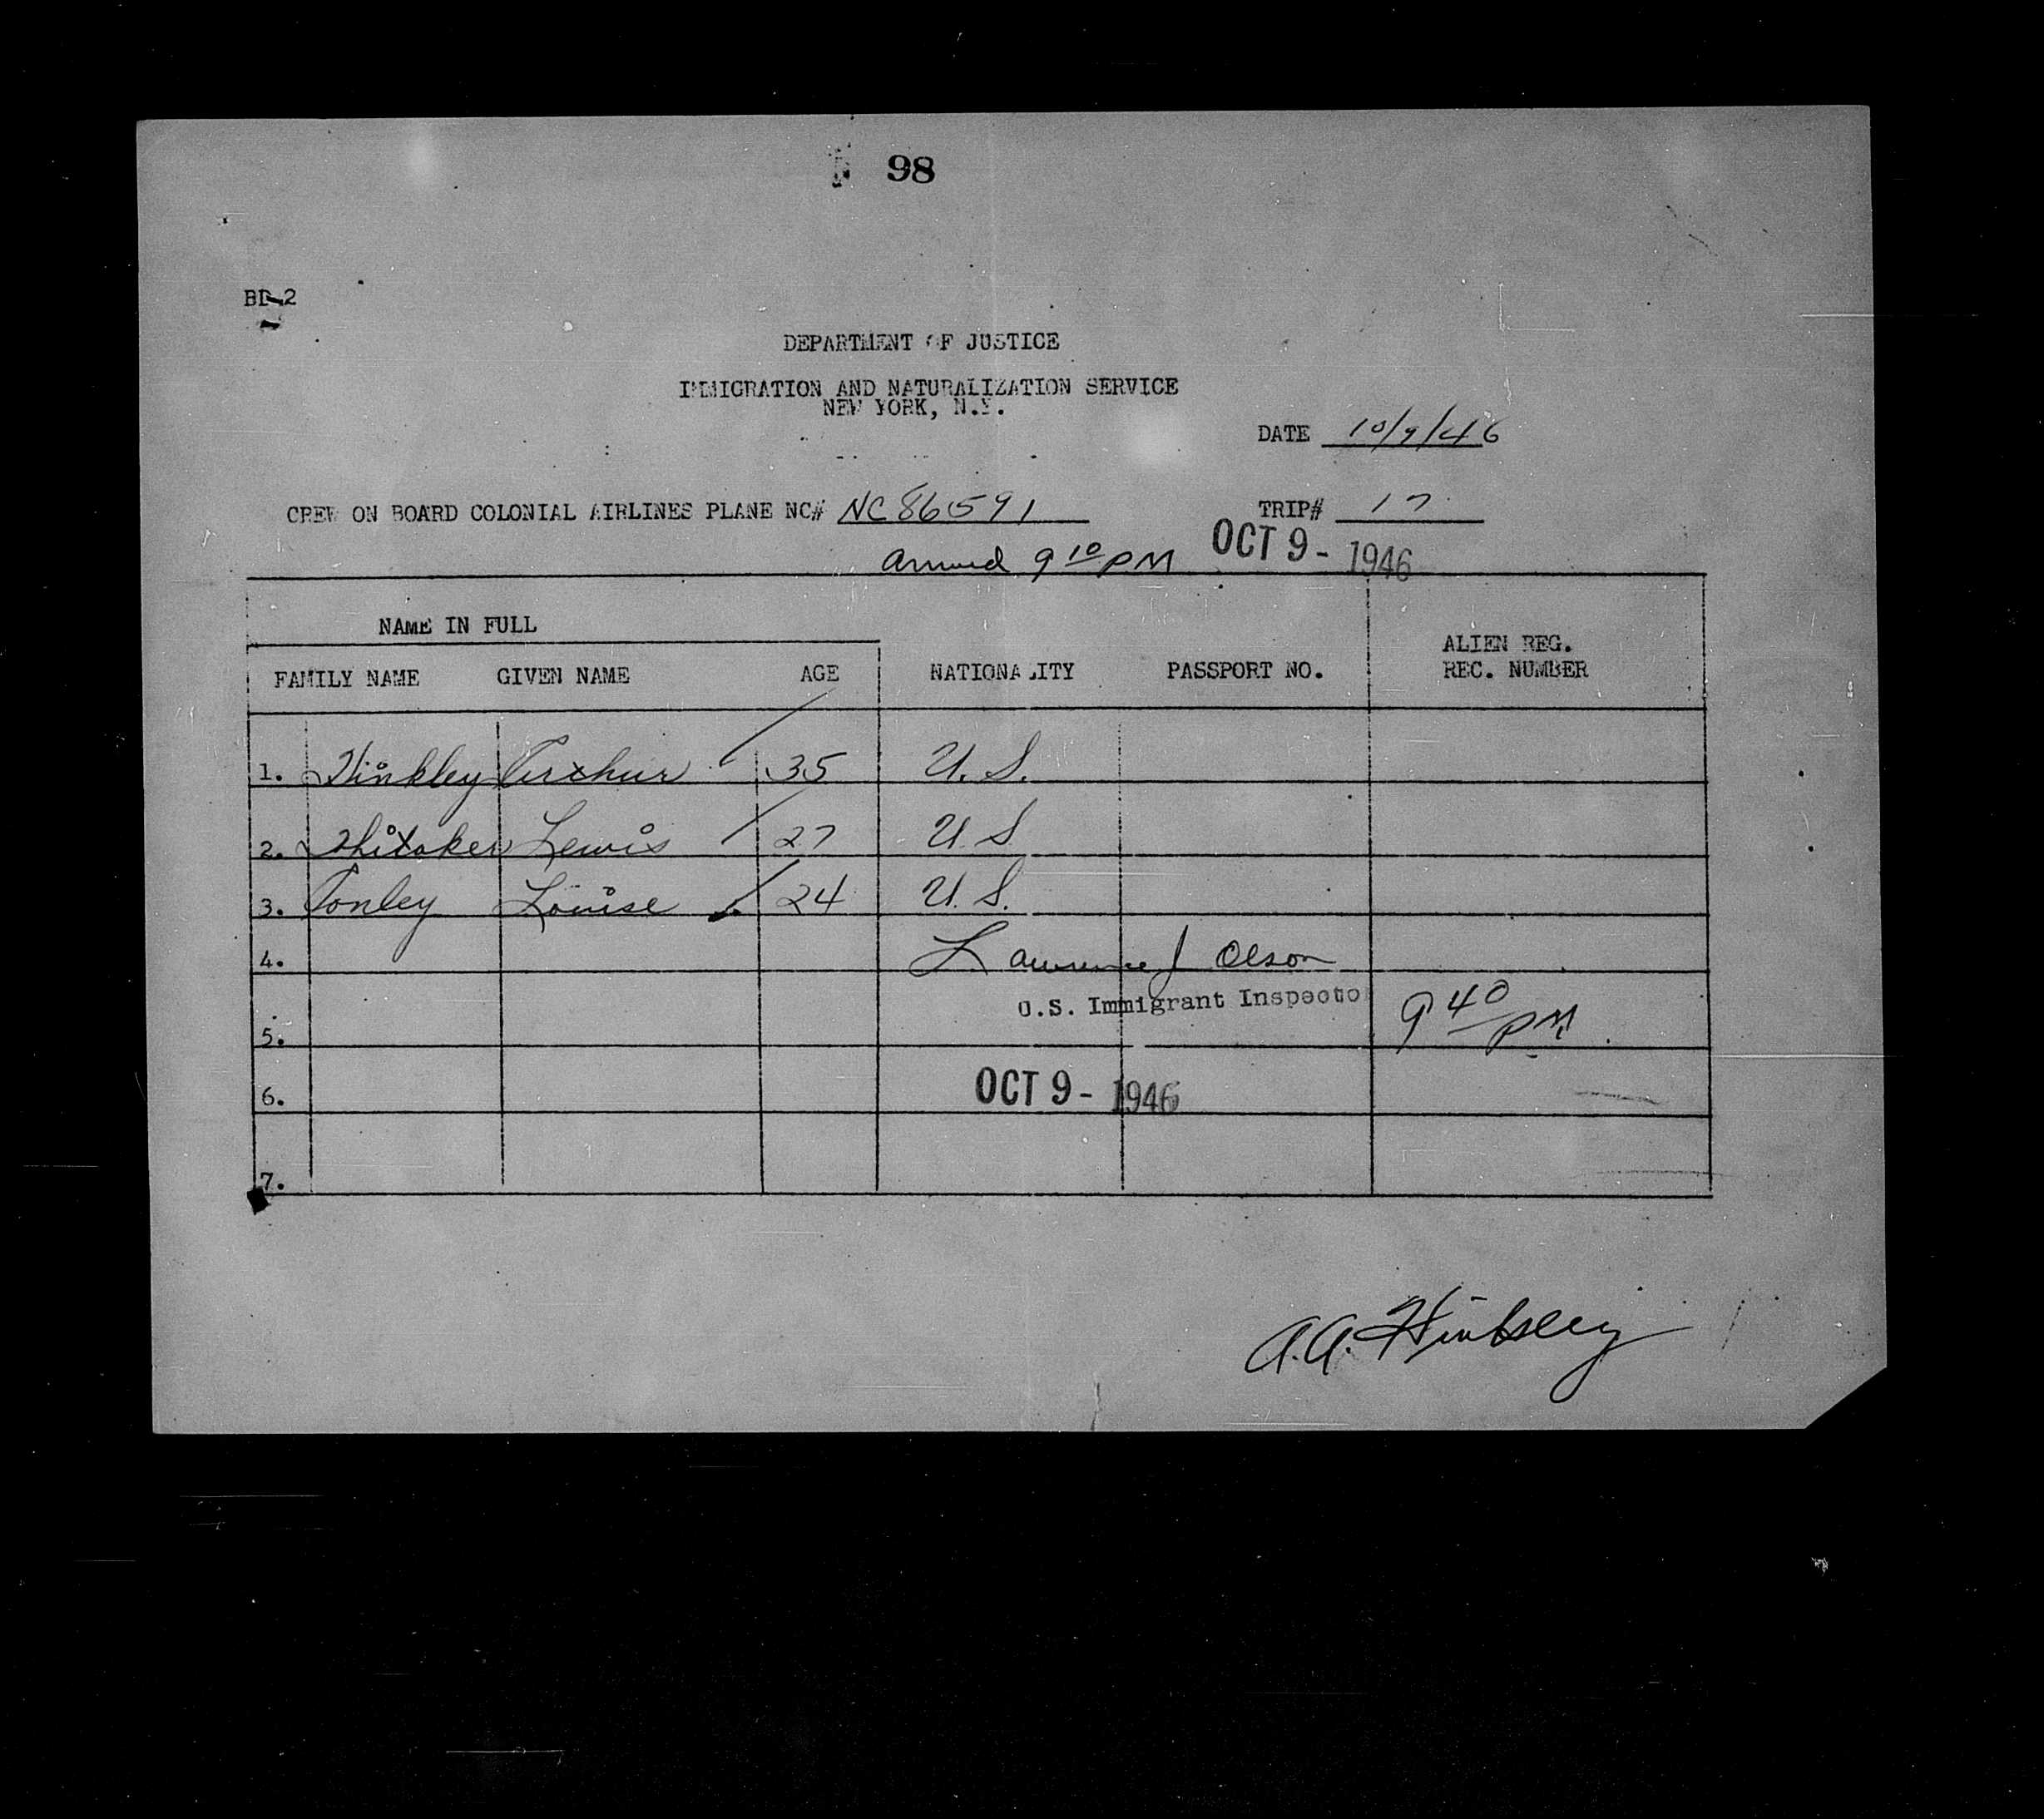 98
BD-2
DEPARTMENT OF JUSTICE
IMMIGRATION AND NATURALIZATION SERVICE
NEW YORK, N.Y.
DATE 10/9/46
CREW ON BOARD COLONIAL AIRLINES PLANE NC# NC86591 TRIP# 17
Arrived 9 10 PM OCT 9 - 1946
NAME IN FULL
FAMILY NAME GIVEN NAME AGE NATIONALITY PASSPORT NO. ALIEN REG. REC. NUMBER
1. Hinkley Arthur 35 U.S.
2. Whitaker Lewis 27 U S
3. Conley Louise 24 U.S.
4. Lawrence J Olson
U.S. Immigrant Inspecto
5. 9 40 PM
6. OCT 9 - 1946
7.
A.A. Hinkley